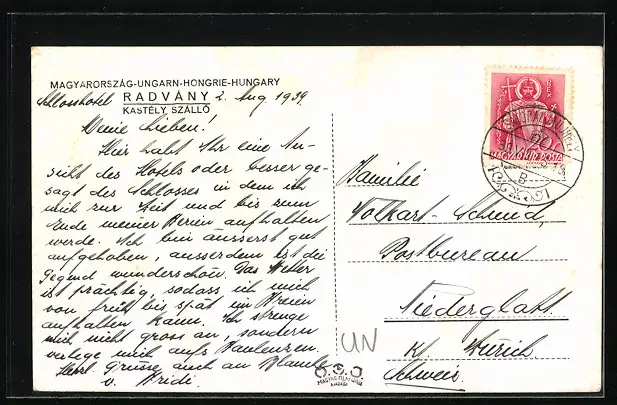 MAGYARORSZÁG-UNGARN-HONGRIE-HUNGARY
Schlosshotel RADVÁNY 2. Aug 1939.
KASTÉLY SZÁLLÓ
Meine Lieben!
Hier habt Ihr eine An-
sicht des Hotels oder besser ge-
sagt des Schlosses in dem ich
mich zur Zeit und bis zum
Ende meiner Ferien aufhalten
werde. Ich bin äusserst gut
aufgehoben, ausserdem ist die
Gegend wunderschön. Das Wetter
ist prächtig, sodass ich mich
von früh bis spät im Freien
aufhalten kann. Ich strenge
mich nicht gross an, sondern
verlege mich aufs Faulenzen.
Herzl. Grüsse auch an
v. Fridi.
Familie
Volkart-Schmid,
Postbureau
Niederglatt
Kt. Zürich
Schweiz.
UN
20
MAGYAR KIR. POSTA
B